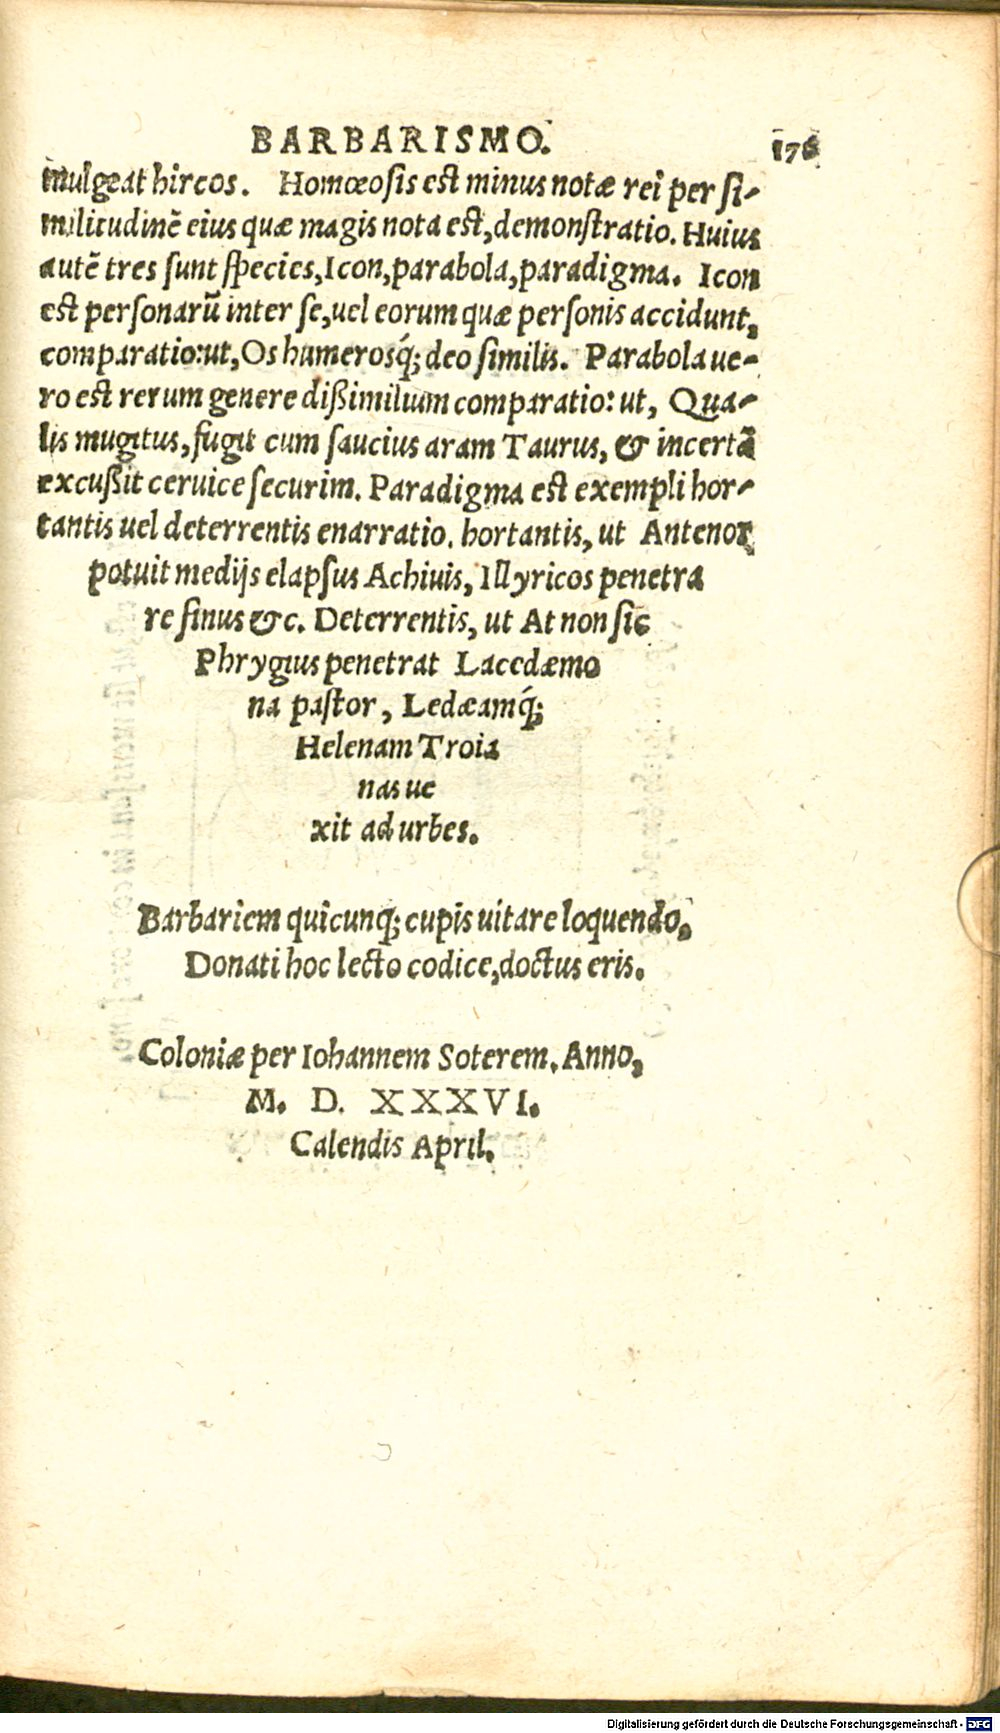 BARBARISMO. 176
mulgeat hircos. Homœosis est minus notæ rei per si-
militudinē eius quæ magis nota est, demonstratio. Huius
autē tres sunt species, Icon, parabola, paradigma. Icon
est personarū inter se, uel eorum quæ personis accidunt,
comparatio: ut, Os humerosq́; deo similis. Parabola ue-
ro est rerum genere dißimilium comparatio: ut, Qua-
lis mugitus, fugit cum saucius aram Taurus, & incertā
excußit ceruice securim. Paradigma est exempli hor-
tantis uel deterrentis enarratio. hortantis, ut Antenor
potuit medijs elapsus Achiuis, Illyricos penetra
re sinus &c. Deterrentis, ut At non sic
Phrygius penetrat Lacedæmo
na pastor, Ledæamq́;
Helenam Troia
nas ue
xit ad urbes.
Barbariem quicunq; cupis uitare loquendo,
Donati hoc lecto codice, doctus eris.
Coloniæ per Iohannem Soterem. Anno,
M. D. XXXVI.
Calendis April.
Digitalisierung gefördert durch die Deutsche Forschungsgemeinschaft - DFG